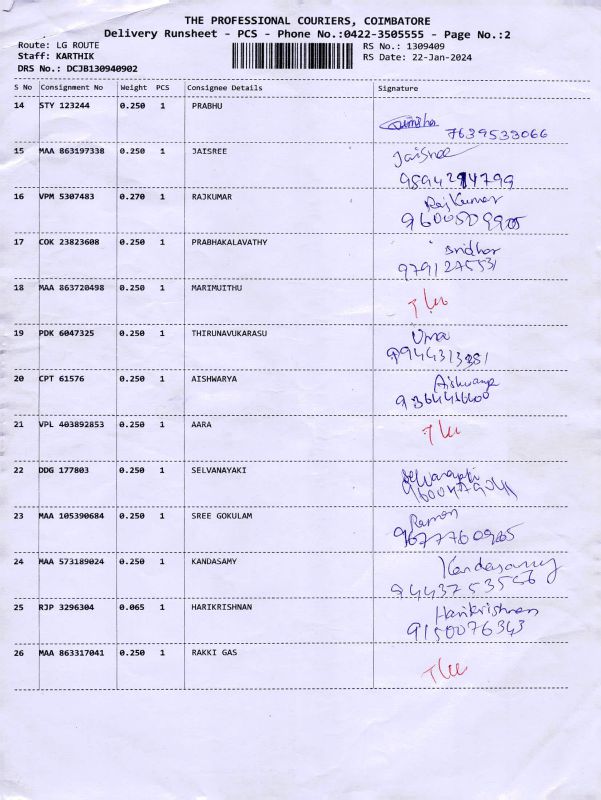 THE PROFESSIONAL COURIERS, COIMBATORE
Delivery Runsheet - PCS - Phone No.:0422-3505555 - Page No.:2
Route: LG ROUTE RS No.: 1309409
Staff: KARTHIK RS Date: 22-Jan-2024
DRS No.: DCJB130940902
S No Consignment No Weight PCS Consignee Details Signature
14 STY 123244 0.250 1 PRABHU
7639533066
15 MAA 863197338 0.250 1 JAISREE Jaisree
16 VPM 5307483 0.270 1 RAJKUMAR Raj Kumar
17 COK 23823608 0.250 1 PRABHAKALAVATHY Sridhar
9791275531
18 MAA 863720498 0.250 1 MARIMUITHU
19 PDK 6047325 0.250 1 THIRUNAVUKARASU Uma
20 CPT 61576 0.250 1 AISHWARYA
21 VPL 403892853 0.250 1 AARA
22 DDG 177803 0.250 1 SELVANAYAKI Selvanayaki
23 MAA 105390684 0.250 1 SREE GOKULAM Raman
24 MAA 573189024 0.250 1 KANDASAMY Kandasamy
25 RJP 3296304 0.065 1 HARIKRISHNAN Harikrishnan
9150076343
26 MAA 863317041 0.250 1 RAKKI GAS